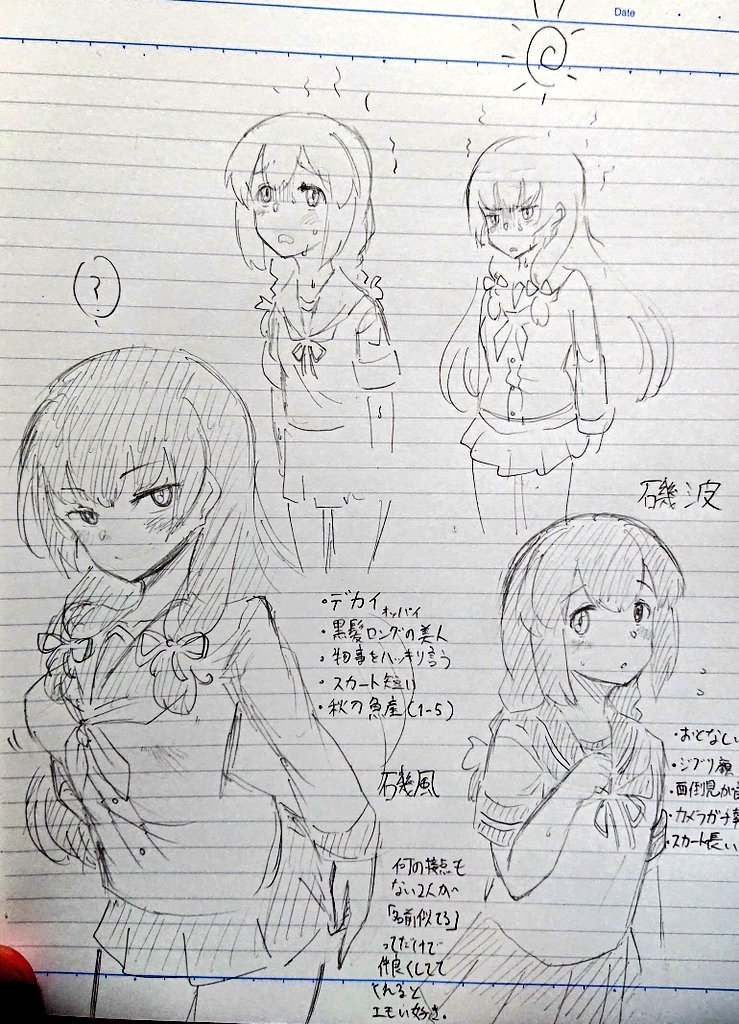 Date
?
磯波
・デカイオッパイ
・黒髪ロングの美人
・物事をハッキリ言う
・スカート短い
・秋の魚屋(1-5)
磯風
・おとなしい
・ジブリ顔
・面倒見が
・カメラガチ
・スカート長い
何の接点も
ない2人が
「名前似てる」
ってだけで
仲良くしてて
くれると
エモい好き。